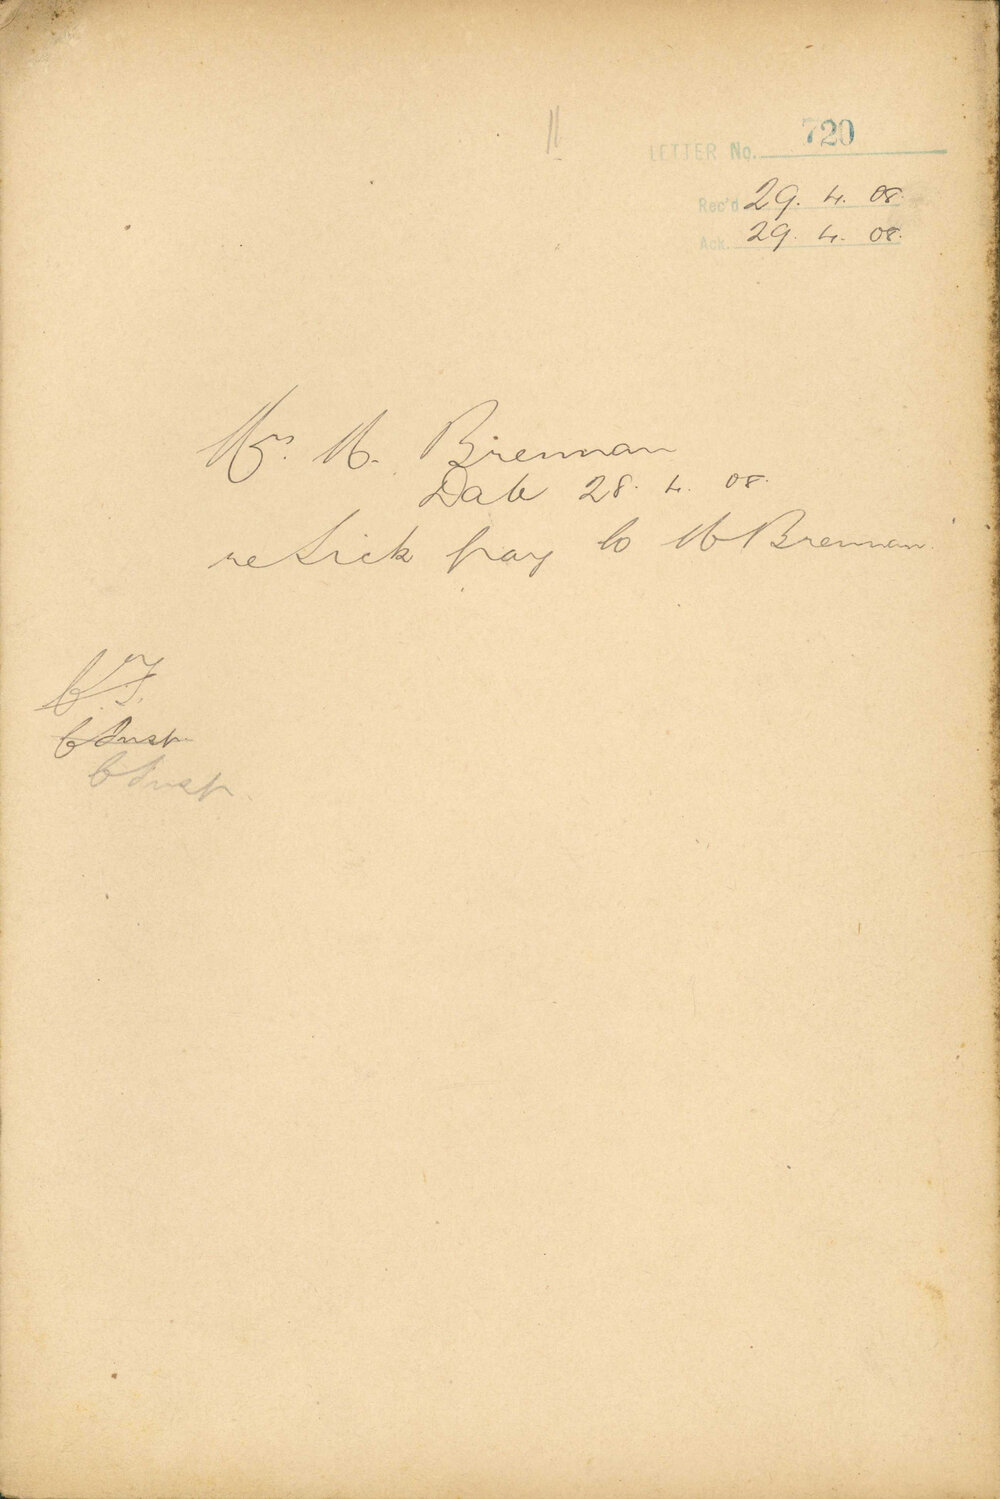 11
LETTER No. 720
Rec'd 29. 4. 08.
Ack. 29. 4. 08.
Mrs. M. Brennan
Date 28. 4. 08.
re Sick pay to M Brennan.
C.T.
C Insp.
C Insp.